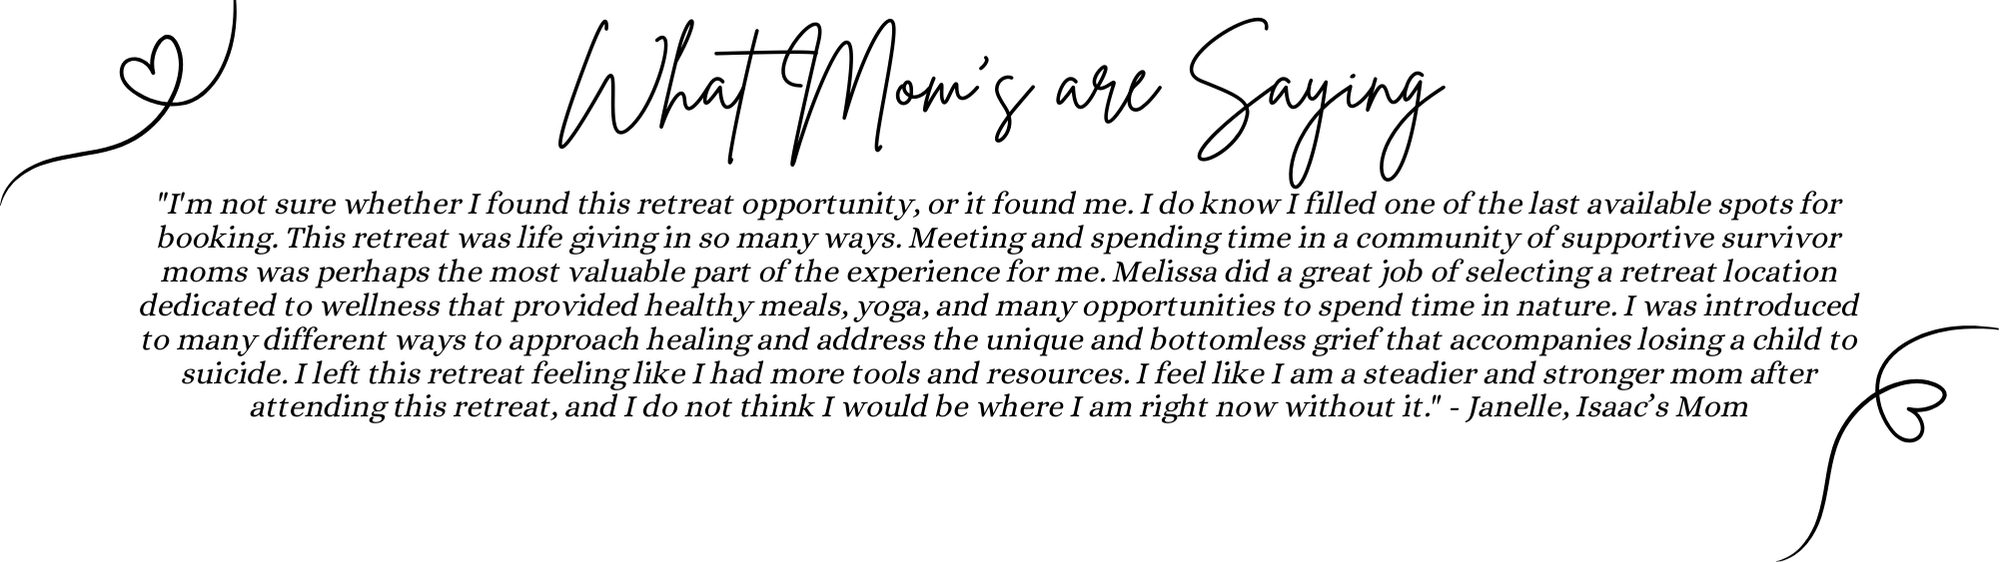 What Mom's are Saying
"I'm not sure whether I found this retreat opportunity, or it found me. I do know I filled one of the last available spots for
booking. This retreat was life giving in so many ways. Meeting and spending time in a community of supportive survivor
moms was perhaps the most valuable part of the experience for me. Melissa did a great job of selecting a retreat location
dedicated to wellness that provided healthy meals, yoga, and many opportunities to spend time in nature. I was introduced
to many different ways to approach healing and address the unique and bottomless grief that accompanies losing a child to
suicide. I left this retreat feeling like I had more tools and resources. I feel like I am a steadier and stronger mom after
attending this retreat, and I do not think I would be where I am right now without it." - Janelle, Isaac’s Mom